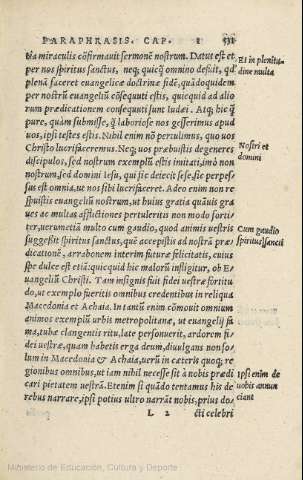 PARAPHRASIS. CAP. I 531
tiã miraculis cõfirmauit sermonẽ nostrum. Datus est et
per nos spiritus sanctus, neq; quicq̃ omnino defuit, qd̃
plenã faceret euangelicæ doctrinæ fidẽ, quãdoquidem
per nostrũ euangeliũ cõsequuti estis, quicquid ad alio
rum prædicationem consequuti sunt Iudæi. Atq; hic q̃
pure, quàm submisse, q̃ laboriose nos gesserimus apud
uos, ipsi testes estis. Nihil enim nõ pertulimus, quo uos
Christo lucrifaceremus. Neq; uos præbuistis degeneres
discipulos, sed nostrum exemplũ estis imitati, imò non
nostrum, sed domini Iesu, qui sic deiecit sese, sic perpes-
sus est omnia, ut nos sibi lucrifaceret. Adeo enim non re
spuistis euangeliũ nostrum, ut huius gratia quãuis gra
ues ac multas afflictiones pertuleritis non modo forti/
ter, uerumetiã multo cum gaudio, quod animis uestris
suggessit spiritus sanctus, quẽ accepistis ad nostrã præ/
dicationẽ, arrabonem interim futuræ felicitatis, cuius
spe dulce est etiã quicquid hic malorũ infligitur, ob E/
uangeliũ Christi. Tam insignis fuit fidei uestræ fortitu
do, ut exemplo fueritis omnibus credentibus in reliqua
Macedonia et Achaia. In tantũ enim cõmouit omnium
animos exemplũ urbis metropolitanæ, ut euangelij fa
ma, tubæ clangentis ritu, late personuerit, ardorem fi/
dei uestræ, quam habetis erga deum, diuulgans non so/
lum in Macedonia & Achaia, uerũ in cæteris quoq; re
gionibus omnibus, ut iam nihil necesse sit à nobis prædi
cari pietatem uestrã. Etenim si quãdo tentamus his de
rebus narrare, ipsi potius ultro narrãt nobis, prius do/
L 2 cti celebri
Et in plenitu-
dine multa
Nostri et
domini
Cum gaudio
spiritus sancti
Ipsi enim de
uobis annun
ciant
Ministerio de Educación, Cultura y Deporte